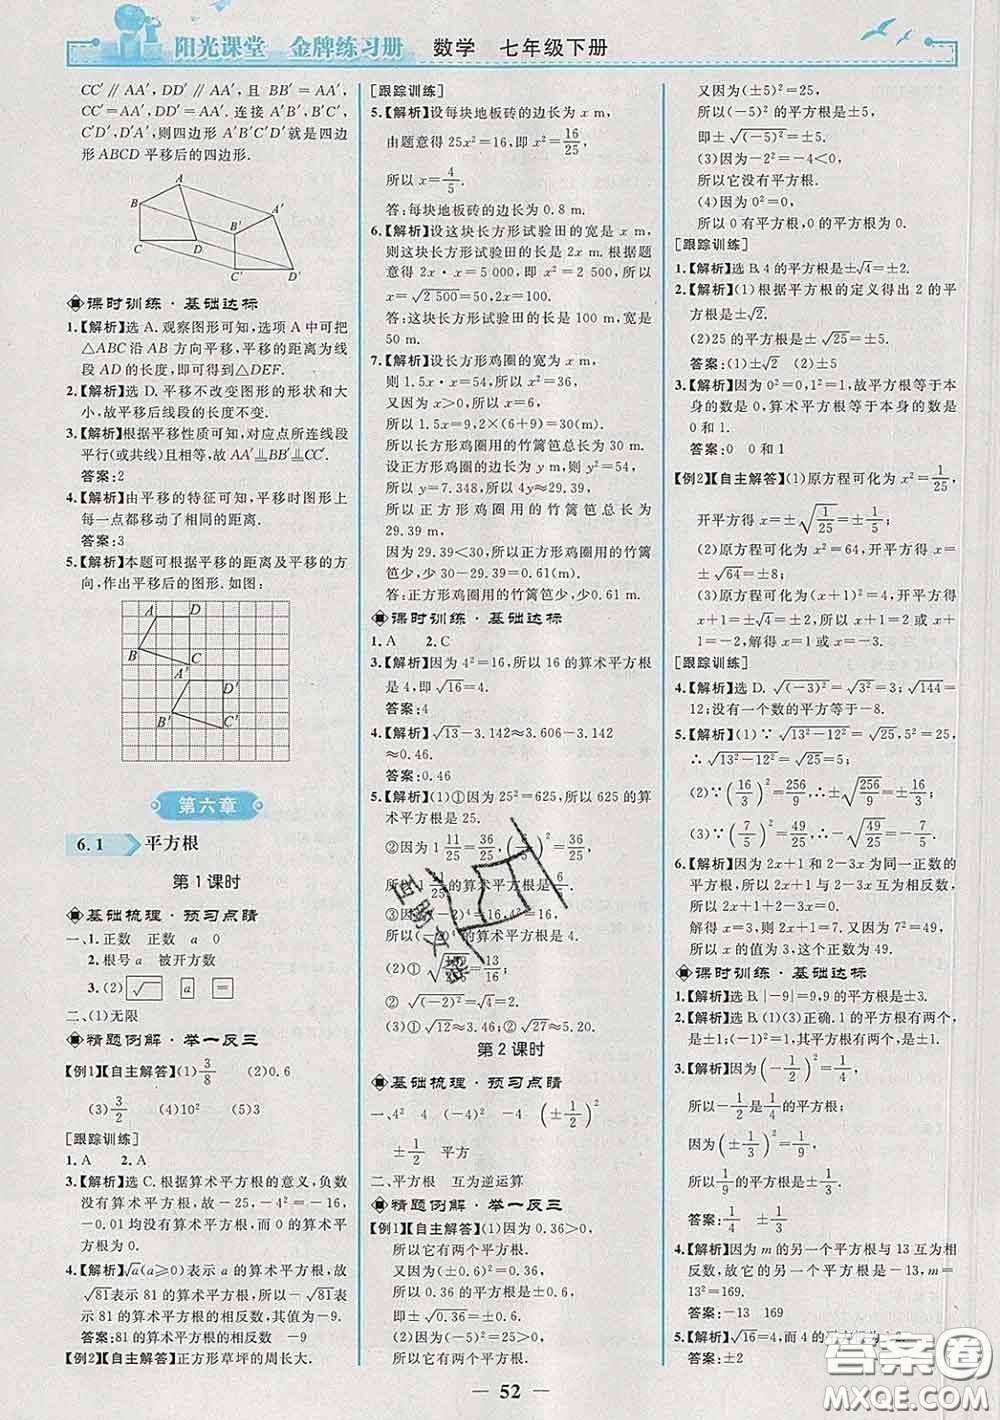 阳光课堂 金牌练习册 数学 七年级下册
CC′∥AA′,DD′∥AA′,且 BB′=AA′,
CC′=AA′,DD′=AA′.连接 A′B′,B′C′,
C′D′,D′A′,则四边形 A′B′C′D′就是四边
形 ABCD 平移后的四边形.
A
B
A′
B′
C
D
C′
D′
课时训练·基础达标
1.【解析】选 A.观察图形可知,选项 A 中可把
△ABC沿 AB 方向平移,平移的距离为线
段 AD 的长度,即可得到△DEF.
2.【解析】选 D.平移不改变图形的形状和大
小,故平移后线段的长度不变.
3.【解析】根据平移性质可知,对应点所连线段
平行(或共线)且相等,故AA′⫫BB′⫫CC′.
答案:2
4.【解析】由平移的特征可知,平移时图形上
每一点都移动了相同的距离.
答案:3
5.【解析】本题可根据平移的距离及平移的方
向,作出平移后的图形.如图:
A D
B
C
A′
D′
B′
C′
第六章
6.1 平方根
第1课时
基础梳理·预习点睛
一、1.正数 正数 a 0
2.根号a 被开方数
3.(2) √ a =
二、(1)无限
精题例解·举一反三
【例1】【自主解答】(1)3/8 (2)0.6
(3)3/2 (4)10² (5)3
[跟踪训练]
1.A 2.A
3.【解析】选 C.根据算术平方根的意义,负数
没有算术平方根,故-25,-4²=-16,
-0.01均没有算术平方根,而0的算术平方
根为0.
4.【解析】√a(a≥0)表示 a 的算术平方根,故
√81表示 81 的算术平方根,其值为 9.-√81
表示 81 的算术平方根的相反数,其值为-9.
答案:81 的算术平方根的相反数 -9
【例2】【自主解答】正方形草坪的周长大.
[跟踪训练]
5.【解析】设每块地板砖的边长为 x m,
由题意得 25x²=16,即 x²=16/25,
所以 x=4/5.
答:每块地板砖的边长为 0.8 m.
6.【解析】设这块长方形试验田的宽是 x m,
则这块长方形试验田的长是 2x m.根据题
意得 2x·x=5 000,即 x²=2 500,
x=√2 500=50,2x=100.
答:这块长方形试验田的长是 100 m,宽是
50 m.
7.【解析】设长方形鸡圈的宽为 x m,
则 1.5x·x=54,x²=36,
又因为x>0,所以x=6,
1.5x=9,2×(6+9)=30(m).
所以长方形鸡圈用的竹篱笆总长为 30 m.
设正方形鸡圈的边长为 y m,则 y²=54,
所以 y≈7.348,所以 4y≈29.39,
所以正方形鸡圈用的竹篱笆总长为
29.39 m.
因为29.39<30,所以正方形鸡圈用的竹篱
笆少,少30-29.39=0.61(m).
答:正方形鸡圈用的竹篱笆少,少0.61 m.
课时训练·基础达标
1.A 2.C
3.【解析】因为 4²=16,所以 16 的算术平方根
是 4,即√16=4.
答案:4
4.【解析】√13-3.142≈3.606-3.142
≈0.46.
答案:0.46
5.【解析】(1)①因为 25²=625,所以 625 的算
术平方根是 25.
②因为1 11/25=36/25,(6/5)²=36/25,
所以1 11/25的算术平方根是6/5.
③因为(-2)⁴=16,4²=16,
所以(-2)⁴的算术平方根是4.
(2)① =13/16.
② √(-2)²=√4=2.
(3)①√12≈3.46. ②√27≈5.20.
第2课时
基础梳理·预习点睛
一、4² 4 (-4)² -4 (±1/2)²
±1/2 平方
二、平方根 互为逆运算
精题例解·举一反三
【例1】【自主解答】(1)因为 0.36>0,
所以它有两个平方根.
又因为(±0.6)²=0.36,
所以 0.36 的平方根是±0.6,
即±√0.36=±0.6.
(2)因为(-5)²=25>0,
所以它有两个平方根.
又因为(±5)²=25,
所以(-5)²的平方根是±5,
即±√(-5)²=±5.
(3)因为-2²=-4<0,
所以它没有平方根.
(4)因为0²=0,
所以0有平方根,0的平方根是0.
[跟踪训练]
1.【解析】选 B.4 的平方根是±√4=±2.
2.【解析】(1)根据平方根的定义得出 2 的平
方根是±√2.
(2)25 的平方根是±√25=±5.
答案:(1)±√2 (2)±5
3.【解析】因为0²=0,1²=1,故平方根等于本
身的数是 0,算术平方根等于本身的数是
0 和 1.
答案:0 0 和 1
【例2】【自主解答】(1)原方程可化为 x²=1/25,
开平方得 x=±√(1/25)=±1/5;
(2)原方程可化为 x²=64,开平方得 x=
±√64=±8;
(3)原方程可化为(x+1)²=4,开平方得
x+1=±√4=±2,即 x+1=2 或
x+1=-2,解得 x=1 或 x=-3.
[跟踪训练]
4.【解析】选 D.√(-3)²=√3²=3;√144=
12;没有一个数的平方等于-8.
5.【解析】(1)∵√13²-12²=√25,5²=25,
∴√13²-12²=√25=5.
(2)∵(16/3)²=256/9,∴-√(256/9)=-16/3.
(3)∵(7/5)²=49/25,∴±√(49/25)=±7/5.
6.【解析】因为 2x+1 和 2-3x 为同一正数的
平方根,所以 2x+1 与 2-3x 互为相反数,
所以 2x+1+2-3x=0,
解得 x=3,所以 2x+1=7.又因为 7²=49,
所以 x 的值为 3,这个正数为 49.
课时训练·基础达标
1.【解析】选 B.|-9|=9,9 的平方根是±3.
2.【解析】选 B.(1)(3)正确.1 的平方根有两个,
是±1;(2)-1²=-1,其平方根有两个,是±1;
3.【解析】因为(-1/2)²=1/4,
所以-1/2是1/4的平方根.
因为(±3/4)²=9/16,
答案:1/4 ±3/4
4.【解析】因为 m 的另一个平方根与 13 互为相
反数,故这个平方根为-13,m=(-13)²=
13²=169.
答案:-13 169
5.【解析】√16=4,而 4 的平方根为±2.
答案:±2
52
答案圈
MXQE.COM